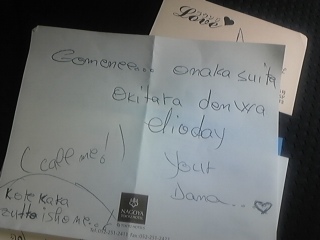 Love
Gomenee... onaka suita
okitara denwa
elioday
(call me!)
your
Dama...
kore kara
zutto issho ne..
NAGOYA